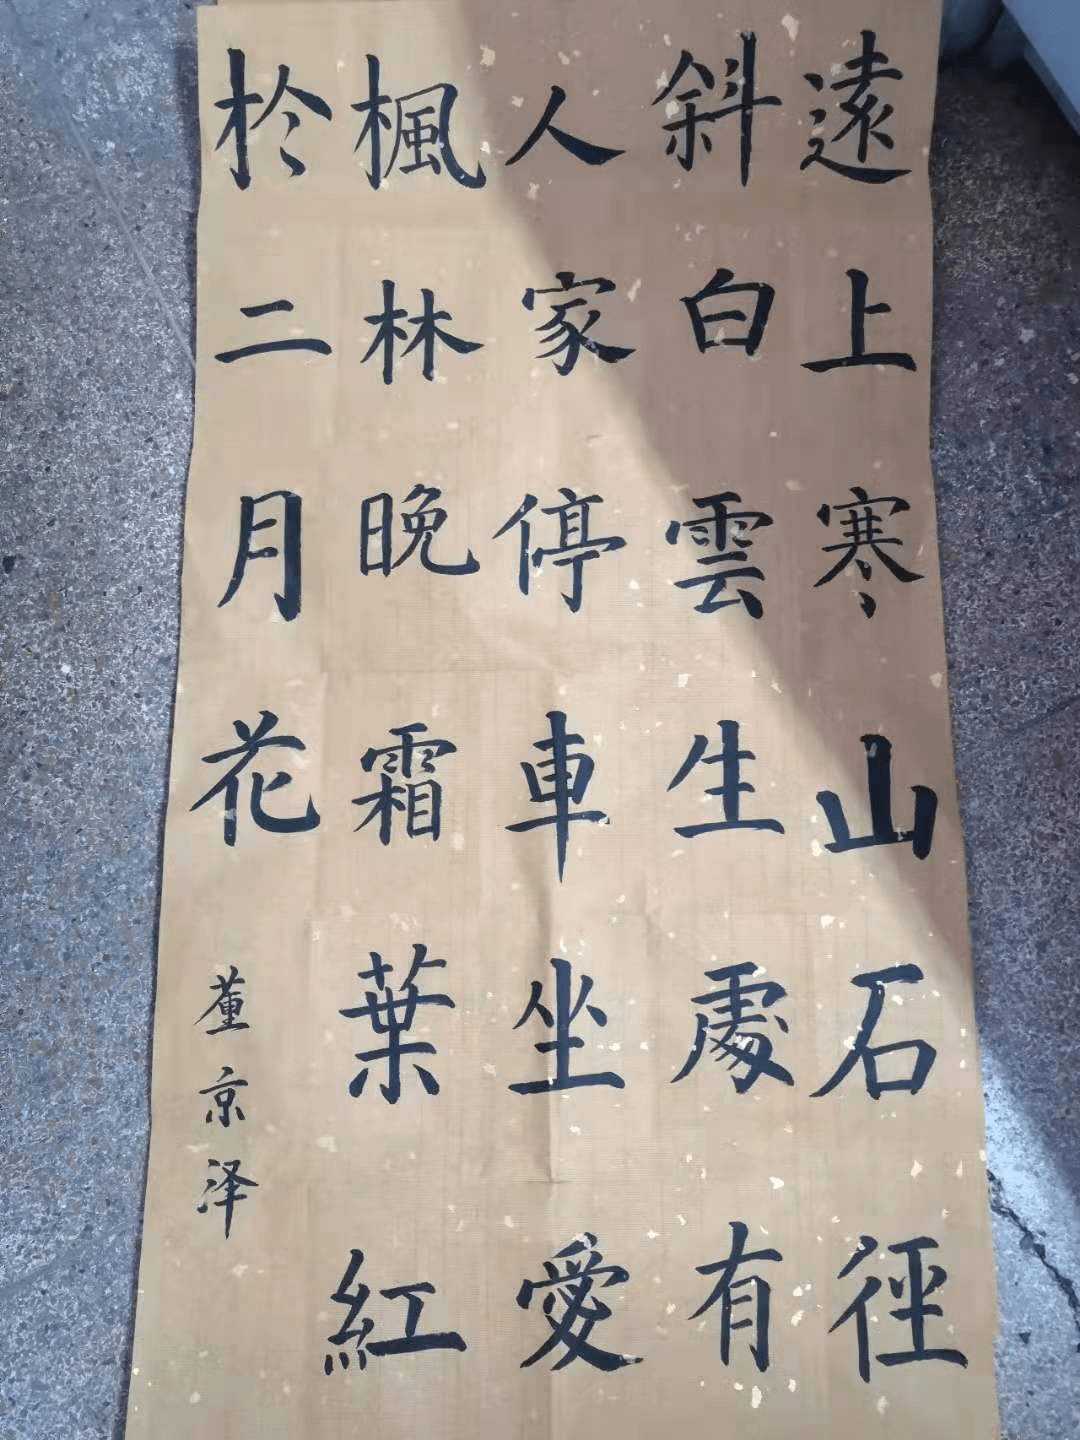 遠上寒山石徑
斜白雲生處有
人家停車坐愛
楓林晚霜葉紅
於二月花
董京泽